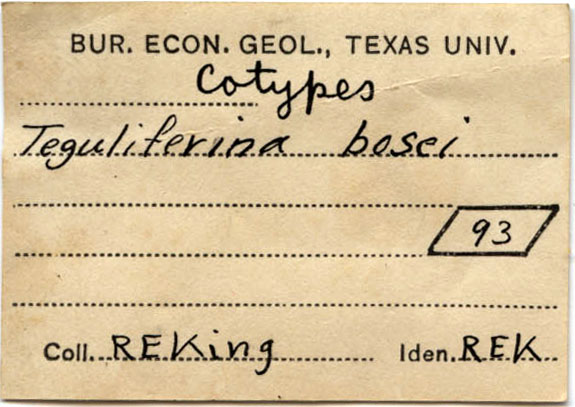 BUR. ECON. GEOL., TEXAS UNIV.
Cotypes
Teguliferina bosei
93
Coll. REKing Iden. REK